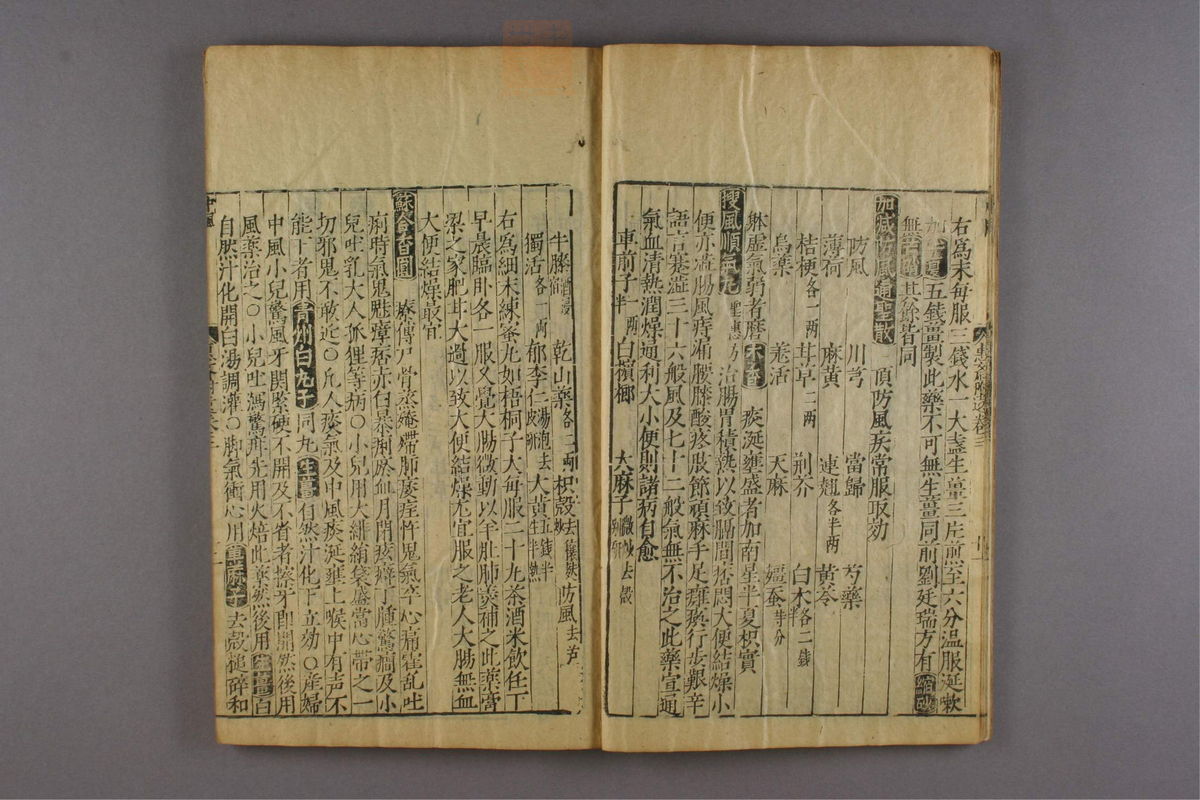 右為末每服三錢水一大盞生薑三片煎至六分溫服涎嗽
加半夏五錢薑製此藥不可無生薑同前劉廷瑞方有縮砂
無其餘皆同
加減防風通聖散 頂防風疾常服取効
防風 川芎 當歸 芍藥
薄荷 麻黃 連翹各半兩 黃芩
桔梗各一兩 甘草二兩 荊芥 白术各二錢半
烏藥 羗活 天麻 殭蚕等分
躰虛氣弱者磨木香 痰涎壅盛者加南星半夏枳實
搜風順氣丸 治腸胃積熱以致膈間痞悶大便結燥小
便赤澁腸風痔漏腰膝酸疼肢節頑麻手足癱瘓行步艱辛
語言蹇澁三十六般風及七十二般氣無不治之此藥宣通
氣血清熱潤燥通利大小便則諸病自愈
車前子二兩半 白檳榔 大麻子微炒去殼
牛膝酒浸 乾山藥各二兩 枳殼去穰炒 防風去芦
獨活各一兩 郁李仁湯泡去皮研 大黃五錢半生半熟
右為細末煉蜜丸如梧桐子大每服二十丸茶酒米飲任下
早晨臨卧各一服又覺大腸微動以羊肚肺羹補之此藥膏
梁之家肥甘大過以致大便結燥尤宜服之老人大腸無血
大便結燥最宜
蘇合香圓 傳尸骨蒸殗殜肺痿疰忤鬼氣卒心痛霍亂吐
痢時氣鬼魅瘴瘧赤白暴痢瘀血月閉痃癖丁腫驚癇及小
兒吐乳大人狐狸等病〇小兒用大緋絹袋盛當心帶之一
切邪鬼不敢近〇凡人痰氣及中風痰涎壅上喉中有声不
能下者用青州白丸子同丸生薑自然汁化下立効〇産婦
中風小兒驚風牙關緊硬不開及不省者擦牙即開然後用
風藥治之〇小兒吐瀉驚疳先用火焙此藥然後用生薑自
自然汁化開白湯調灌〇脚氣衝心用萆麻子去殼搥碎和